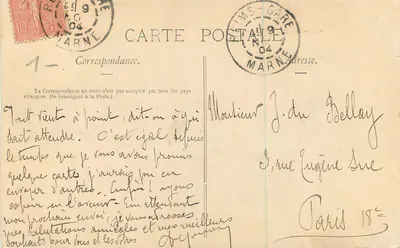 REIMS-GARE
9
04
MARNE
REIMS-GARE
9
04
MARNE
CARTE POSTALE
1-
Correspondance.
Adresse.
La Correspondance au recto n'est pas acceptée par tous les pays
étrangers. (Se renseigner à la Poste.)
Tout vient à point, dit-on à qui
sait attendre. C'est égal, depuis
le temps que je vous avais promis
quelque carte, j'aurais pu en
envoyer d'autres. Enfin! ayons
espoir en l'avenir. En attendant
mon prochain envoi, je vous adresse
mes salutations amicales et mes meilleurs
souhaits pour vous et les vôtres
Monsieur J. du Bellay
3, rue Eugène Sue
Paris 18e